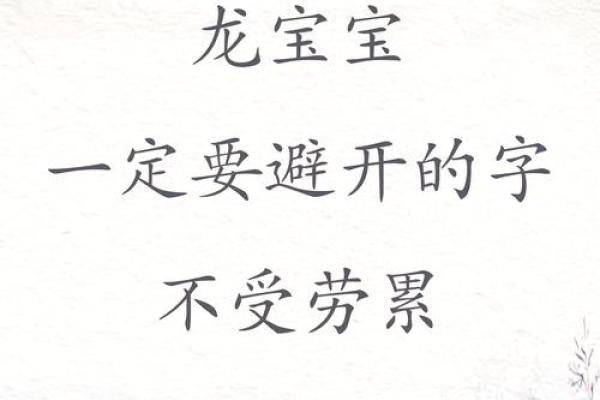 龙宝宝
一定要避开的字
不受劳累